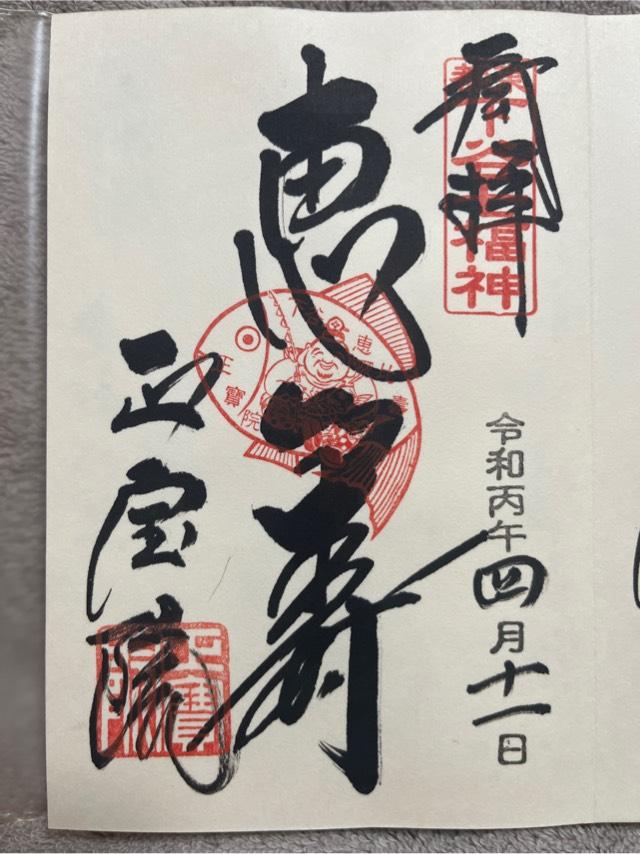 奉拝
下谷七福神
令和丙午四月十一日
恵比寿
恵比壽
正寶院
正宝院
正寶院